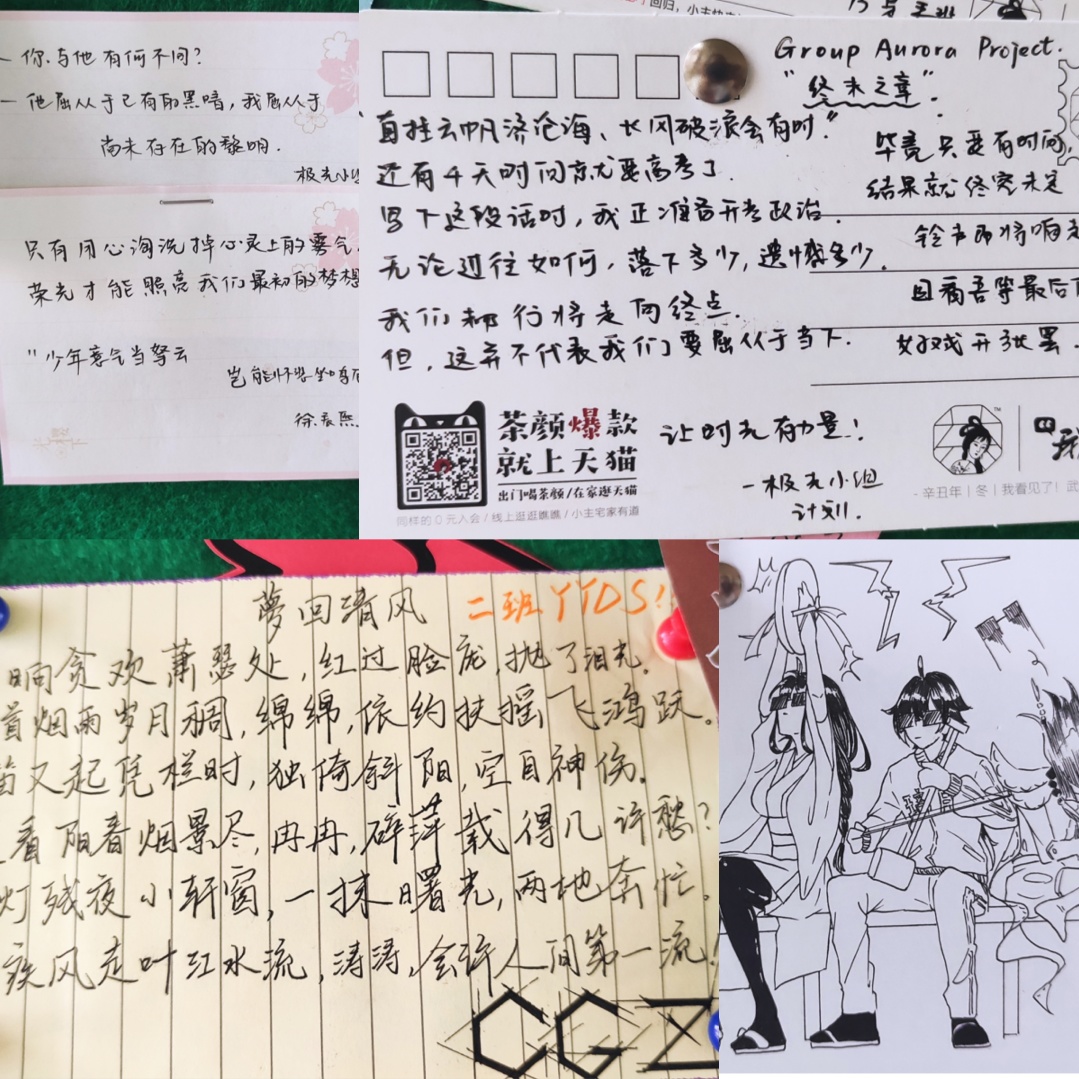 - 你与他有何不同?
- 他屈从于已有的黑暗,我屈从于
尚未存在的黎明.
极光小
只有用心淘洗掉心灵上的雾气
荣光才能照亮我们最初的梦想
"少年
岂能
徐
回归,小主
Group Aurora Project.
"终末之章".
直挂云帆济沧海、长风破浪会有时."
还有4天时间就要高考了.
写下这段话时,我正准备开考政治.
无论过往如何,落下多少,遗憾多少.
我们都行将走向终点.
但,这并不代表我们要屈从于当下.
毕竟只要有时间,
结果就终究未定
铃声即将响起
且看吾等最后
好戏开张罢.
让时光有力量!
-极光小组
计划.
茶颜爆款
就上天猫
出门喝茶颜/在家逛天猫
同样的0元入会/线上逛逛瞧瞧/小主宅家有道
- 辛丑年|冬|我看见了!武
TM
梦回清风 二班YYDS!
晌贪欢萧瑟处,红过脸庞,抛了泪光.
首烟雨岁月稠,绵绵,依约扶摇飞鸿跃。
笛又起凭栏时,独倚斜阳,空自神伤.
看阳春烟景尽,冉冉,碎萍载得几许愁?
灯残夜小轩窗,一抹曙光,两地奔忙.
疾风走叶江水流,涛涛,会许人间第一流!
CGZ